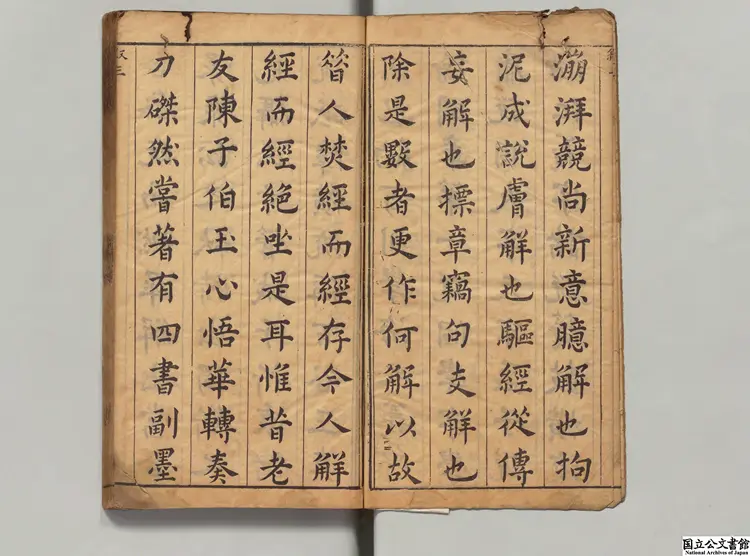 漰湃競尚新意臆解也拘
泥成說膚解也驅經從傳
妄解也摽章竊句支解也
除是數者更作何解以故
㫺人焚經而經存今人解
經而經絕坐是耳惟昔老
友陳子伯玉心悟華轉奏
刀磔然嘗著有四書副墨
国立公文書館
National Archives of Japan